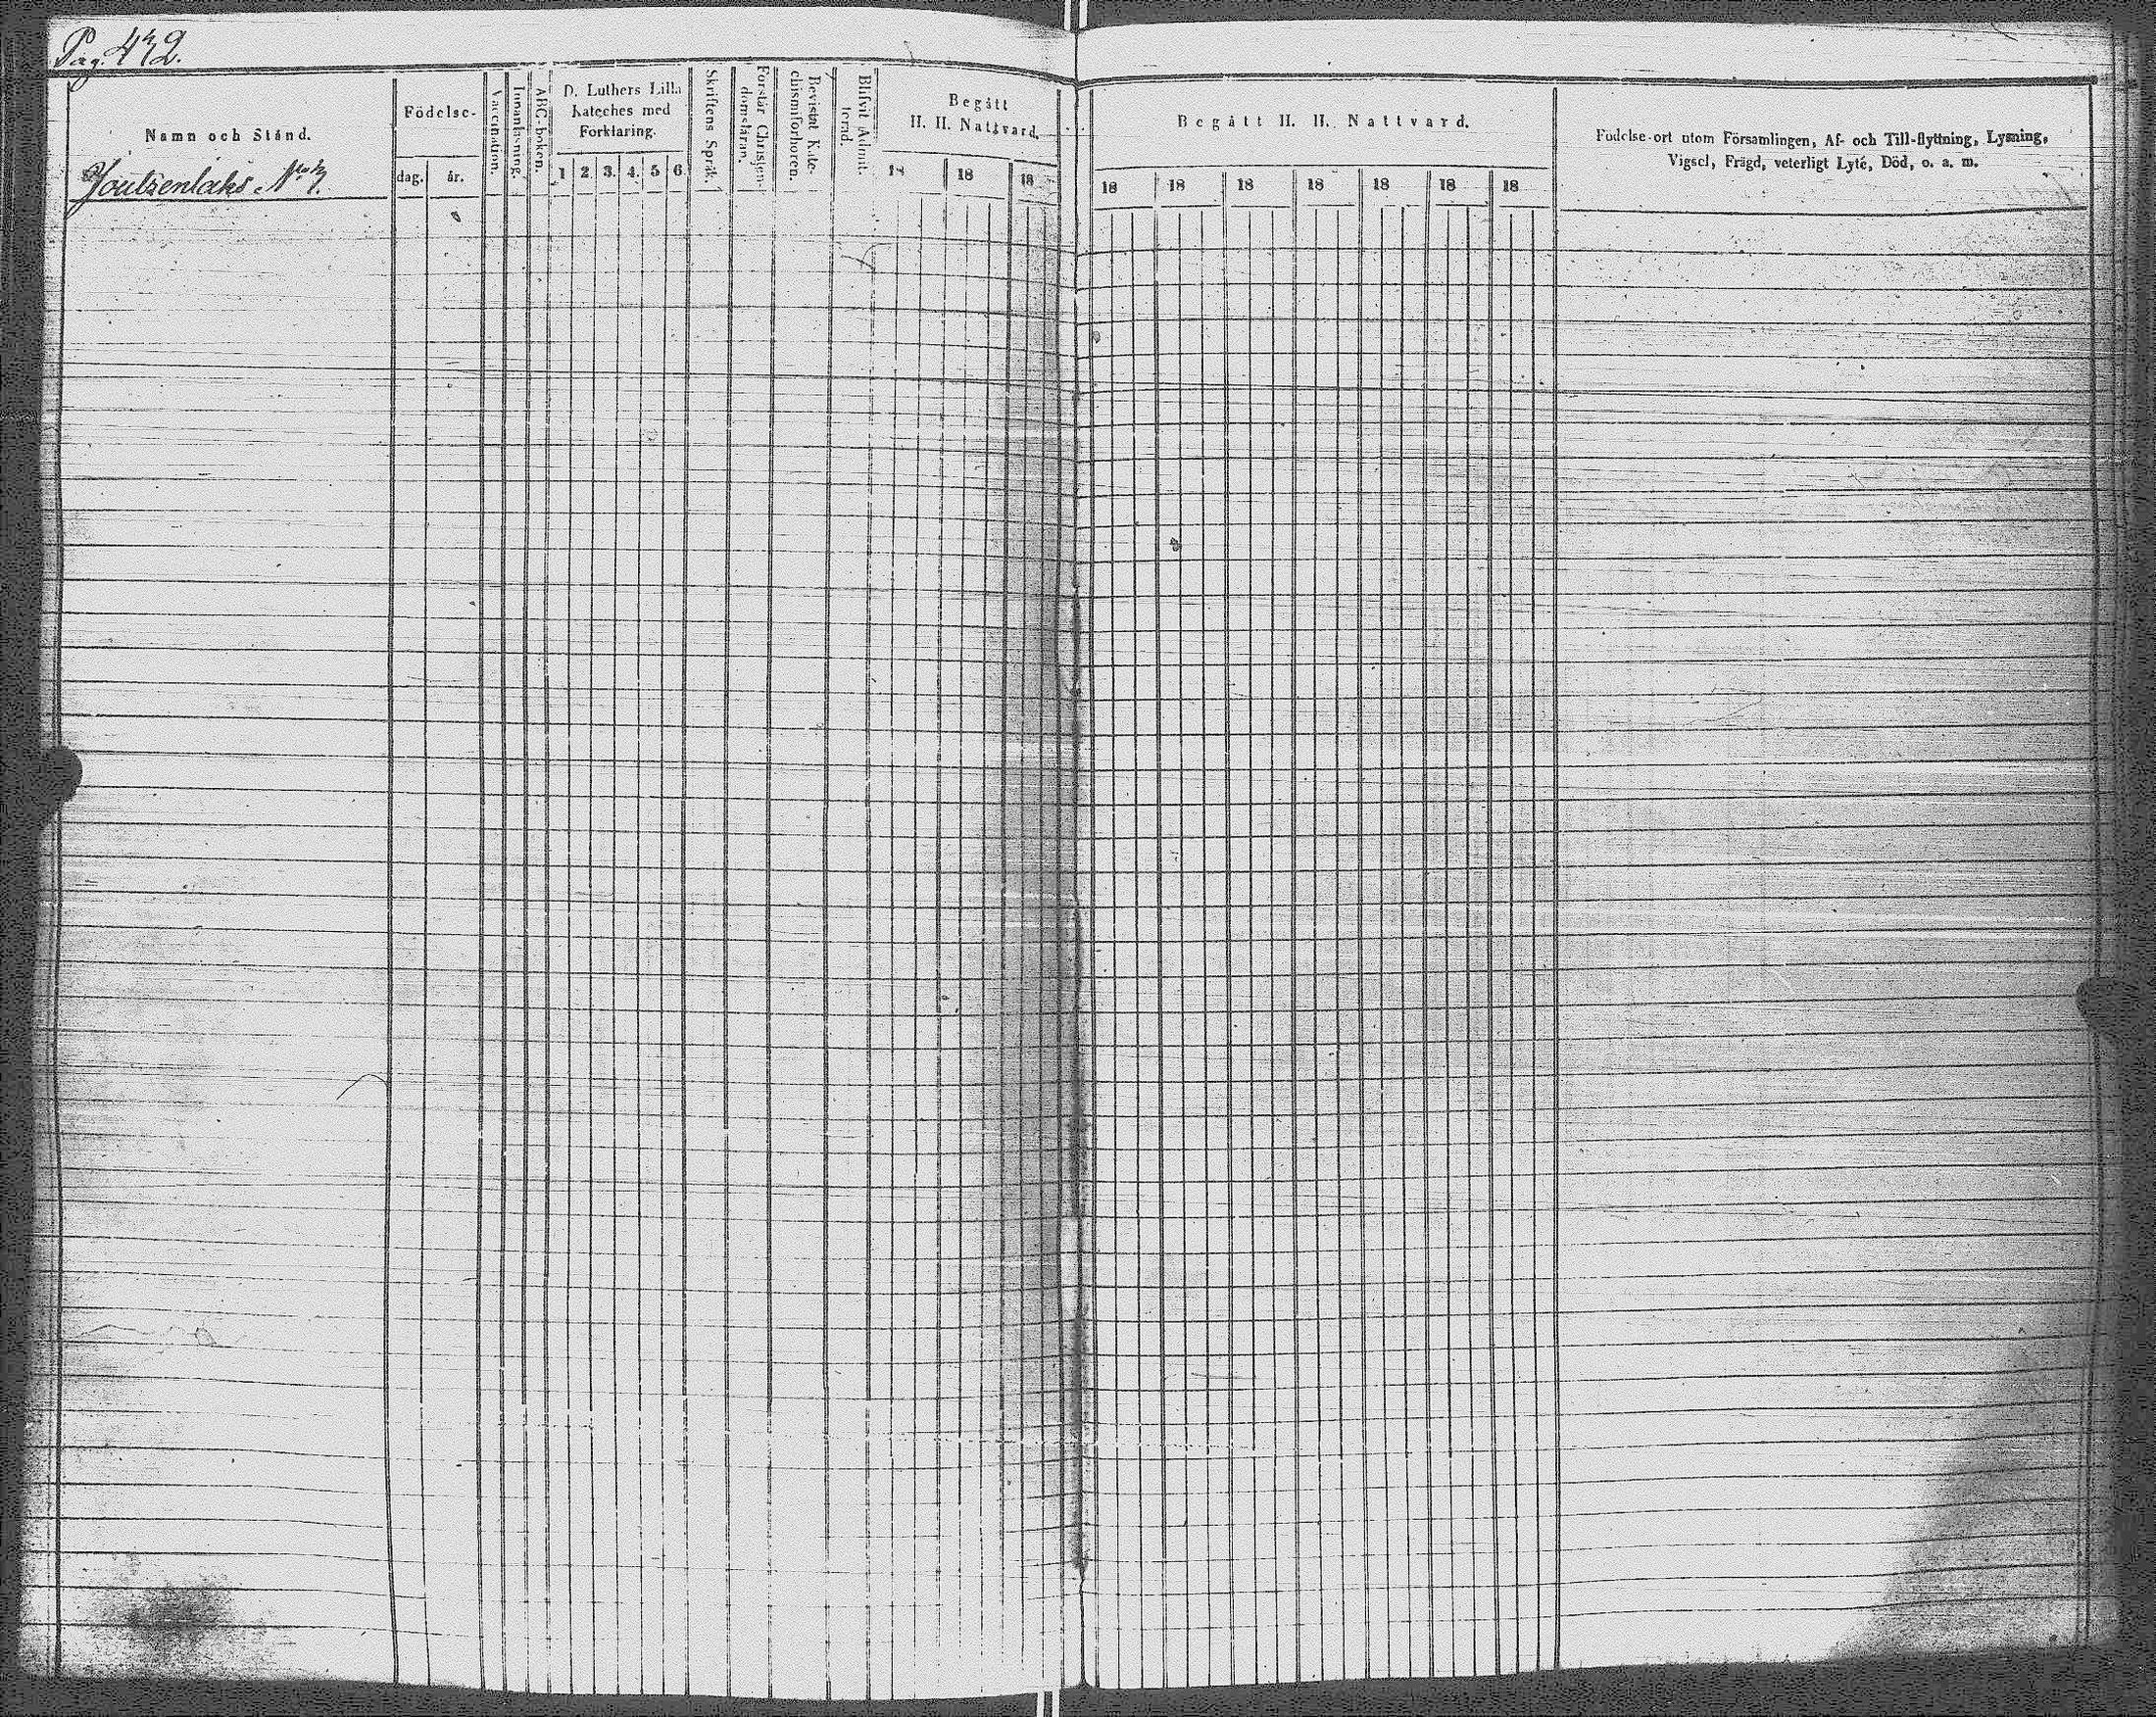 Pag. 472.
Namn och Stånd.
Joutsenlaks No 7.
Födelse-
dag.
år.
Vaccination.
Innanläsning.
ABC-boken.
D. Luthers Lilla
Kateches med
Förklaring.
1 2. 3. 4. 5 6.
Skriftens Språk.
Förstår Christen-
domsläran.
Bevistat Kate-
chismiförhören.
Blifvit Admit-
terad.
Begått
H. H. Nattvard.
18 18 18
Begått H. H. Nattvard.
18 18 18 18 18 18 18
Födelse-ort utom Församlingen, Af- och Till-flyttning, Lysning,
Vigsel, Frägd, veterligt Lyte, Död, o. a. m.